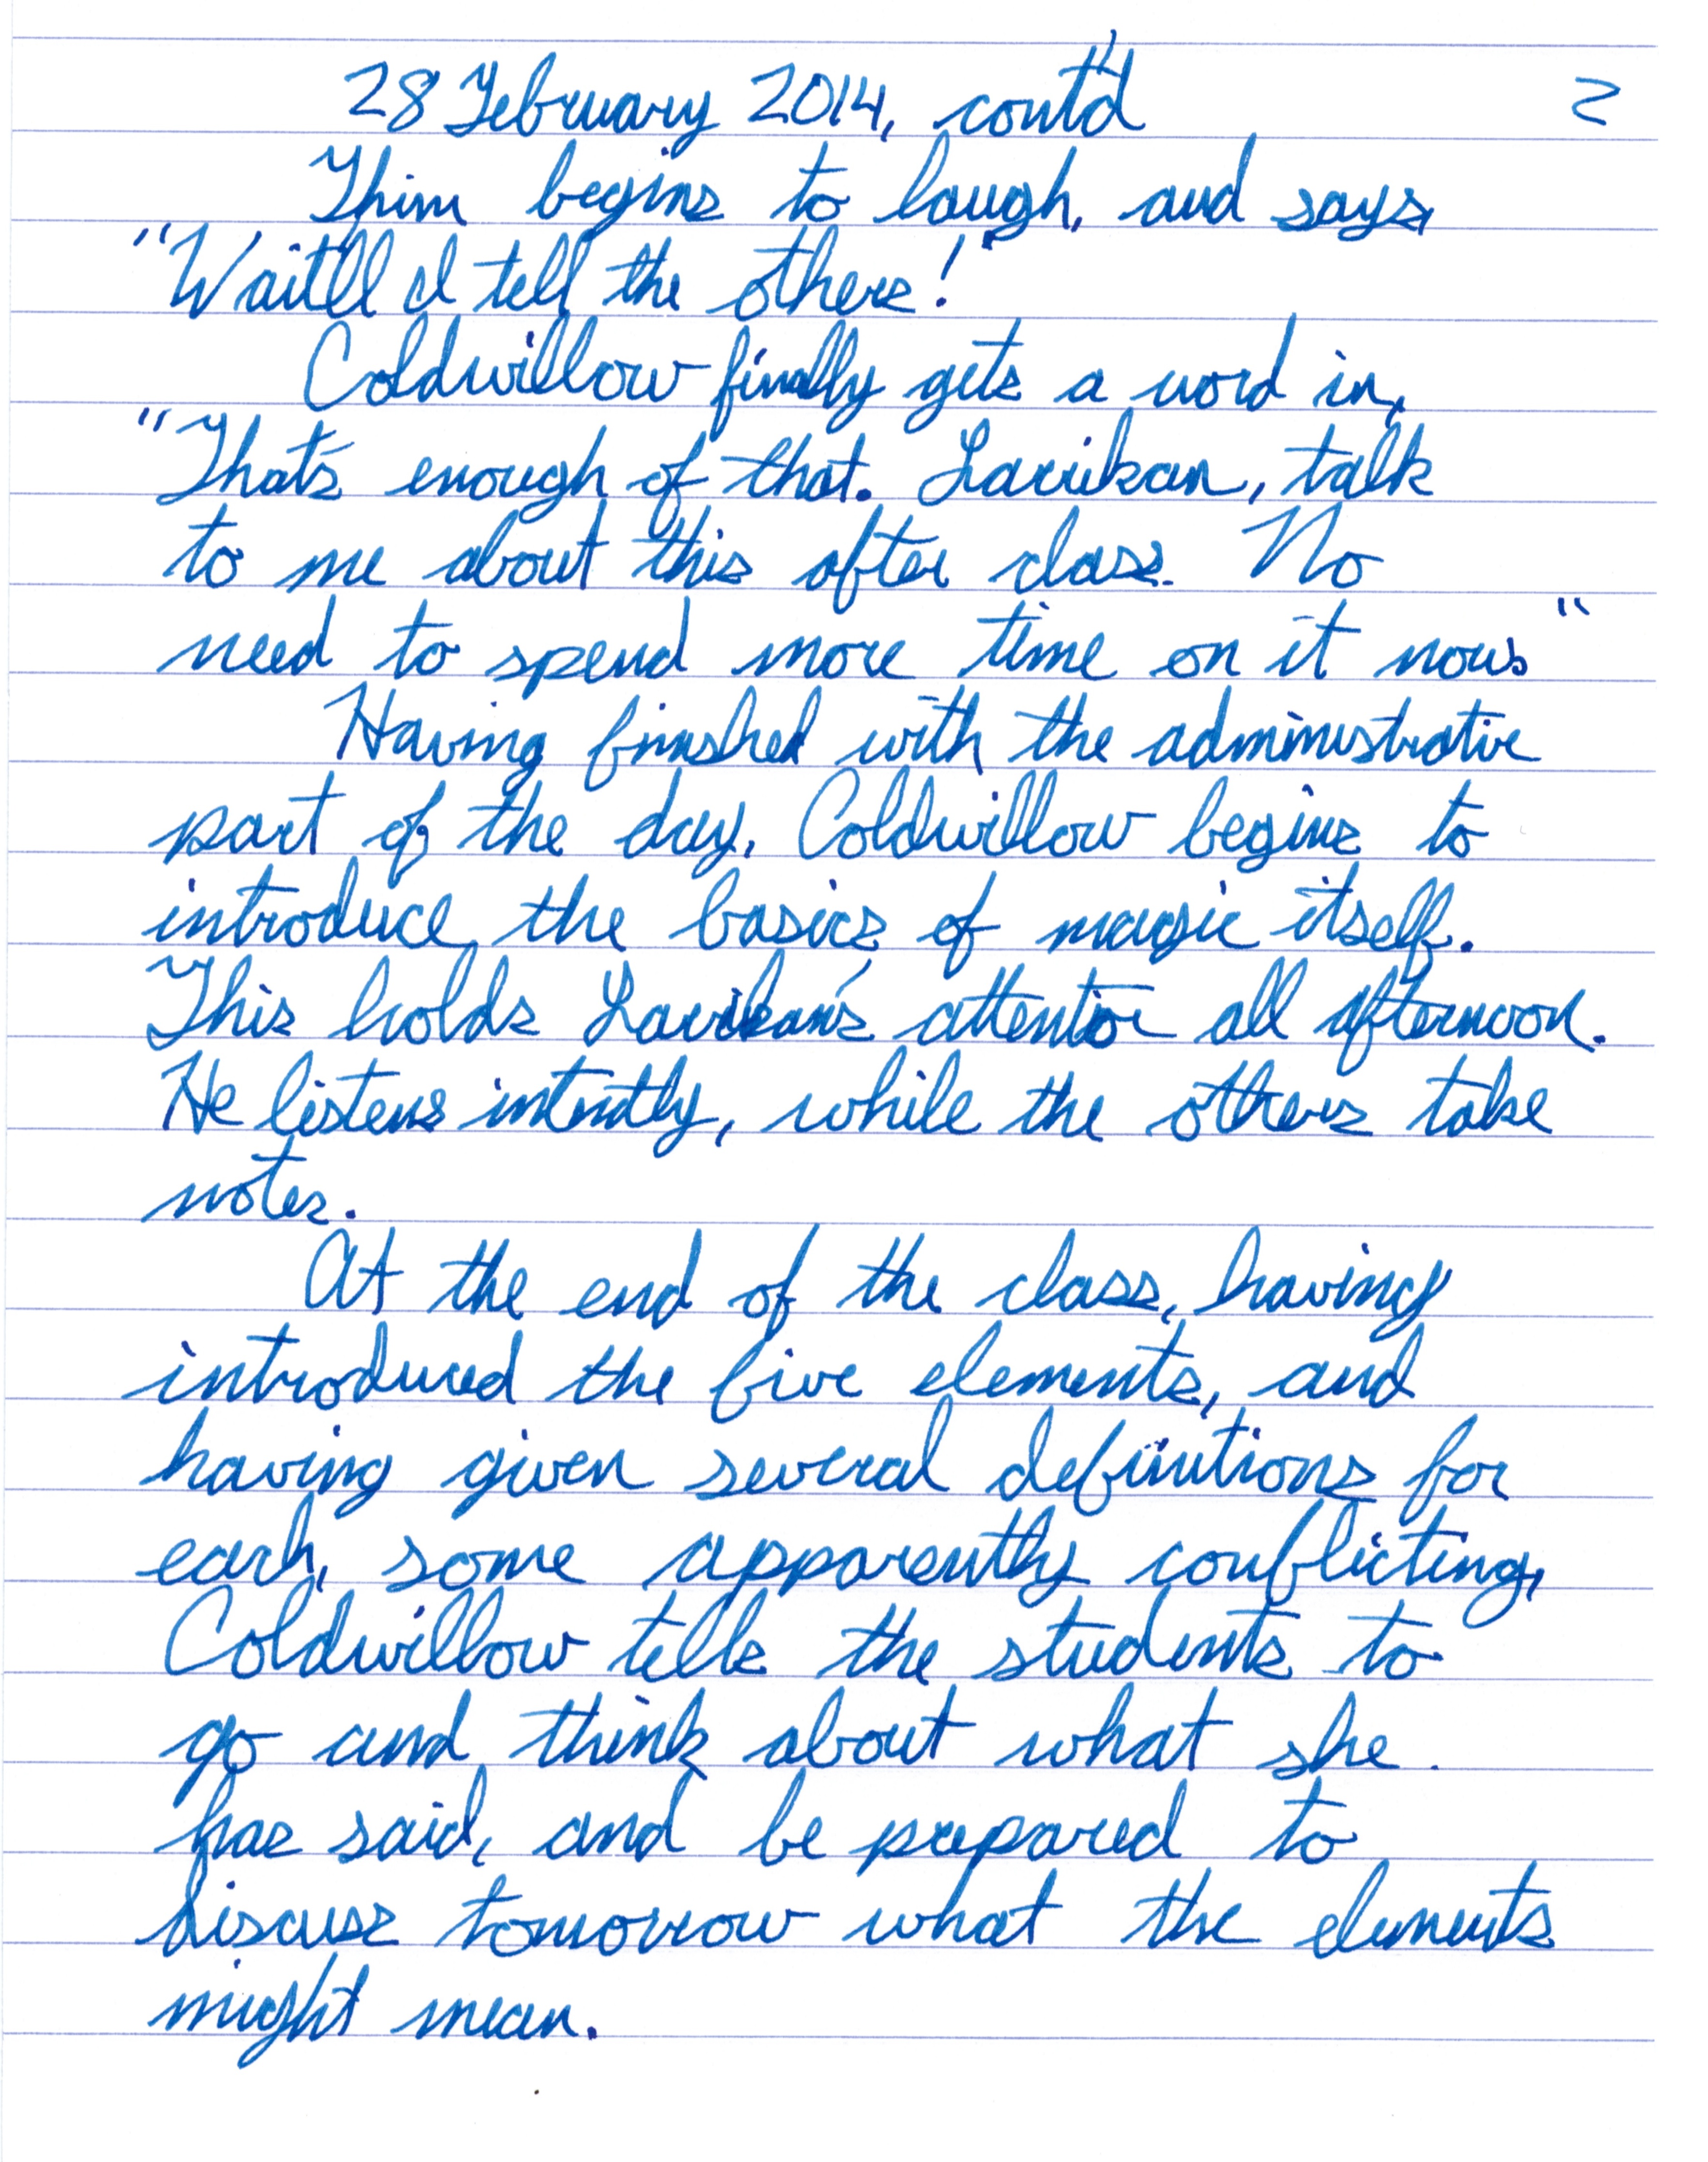 28 February 2014, cont'd 2
Thim begins to laugh, and says,
"Wait'll I tell the others!"
Coldwillow finally gets a word in,
"That's enough of that. Lavrikan, talk
to me about this after class. No
need to spend more time on it now."
Having finished with the administrative
part of the day, Coldwillow begins to
introduce the basics of magic itself.
This holds Lavrikan's attention all afternoon.
He listens intently, while the others take
notes.
At the end of the class, having
introduced the five elements, and
having given several definitions for
each, some apparently conflicting,
Coldwillow tells the students to
go and think about what she
has said, and be prepared to
discuss tomorrow what the elements
might mean.